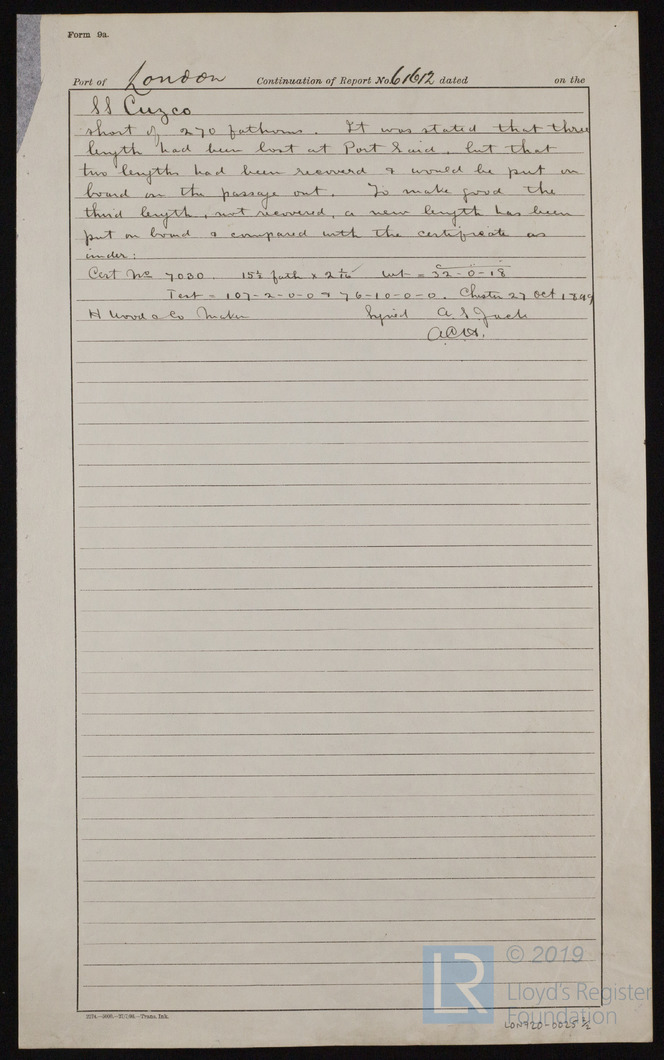 Form 9a.
Port of London Continuation of Report No. 61612 dated on the
SS Cuzco
short of 270 fathoms. It was stated that three
length had been lost at Port Said, but that
two lengths had been recovered & would be put on
board on the passage out. To make good the
third length, not recovered, a new length has been
put on board & compared with the certificate as
under:
Cert No 7030. 15½ fath x 2 5/16 Wt = 32-0-18
Test = 107-2-0-0 & 76-10-0-0. Chester 27 Oct 1899
H Wood & Co Maker Signed A. S. Jack
2174.—5000.—27/7/98.—Trans. Ink.
LR
© 2019
Lloyd's Register
Foundation
LON920-0025 ½